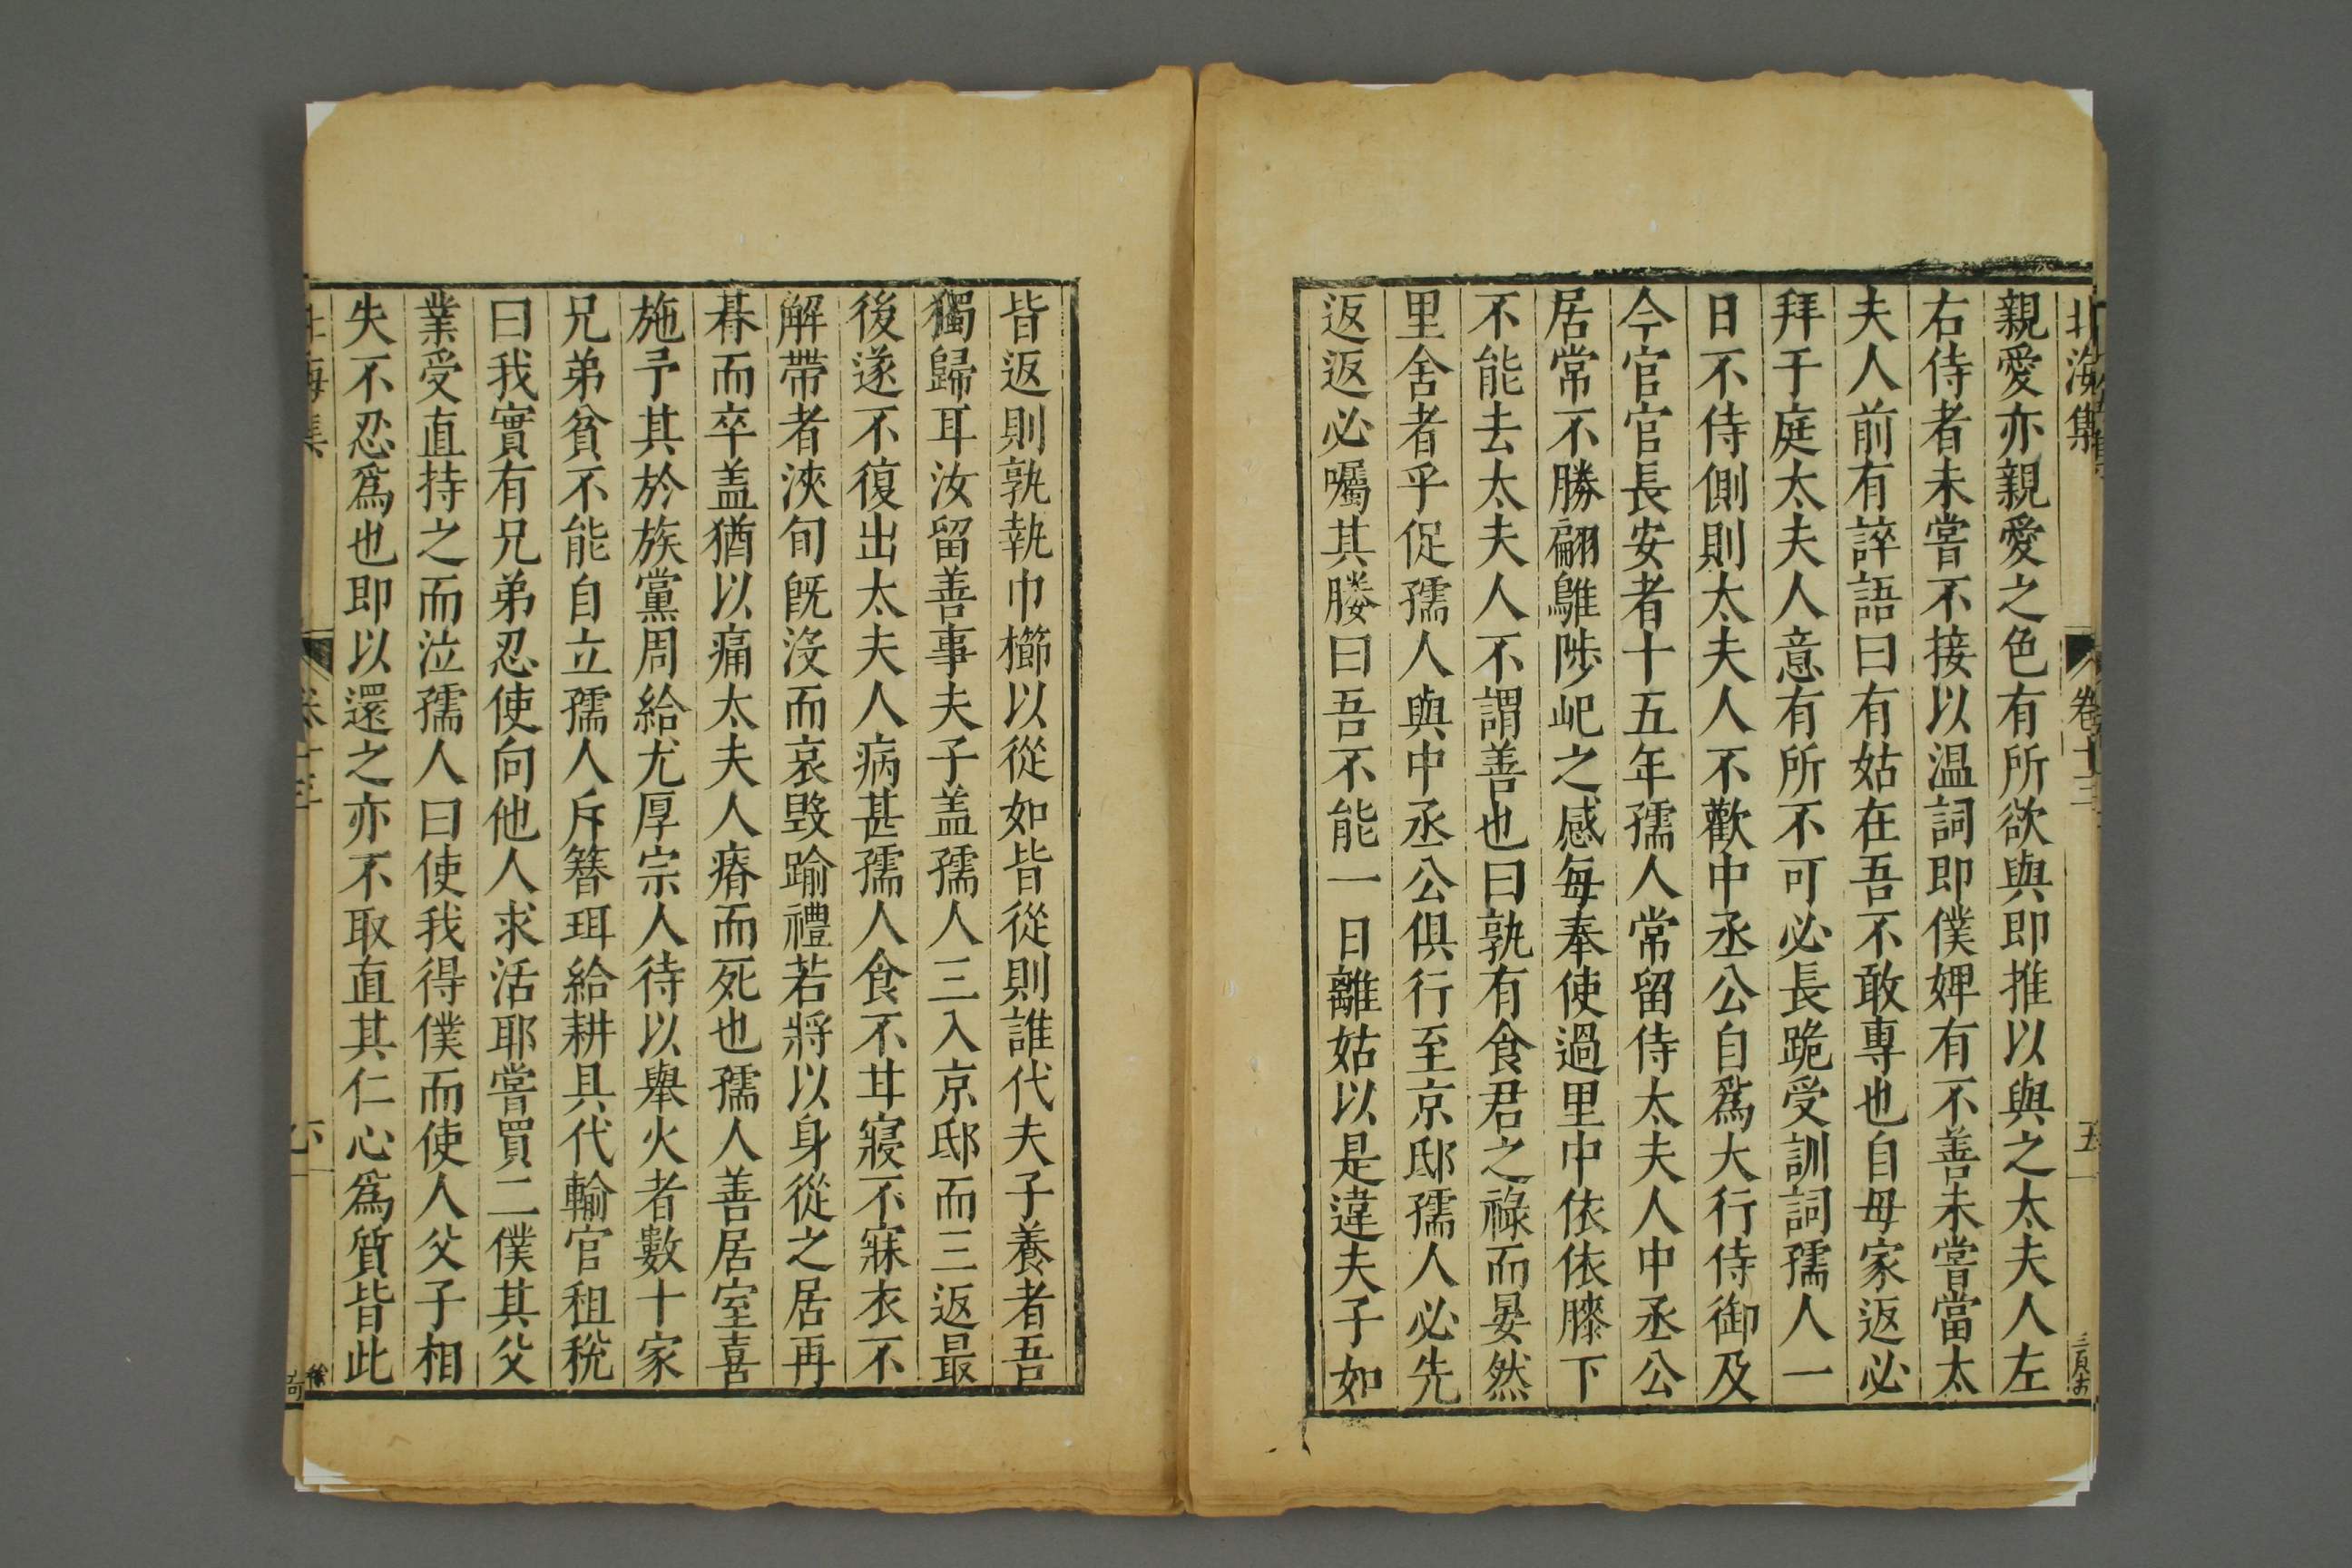 北海集 卷十三 五
親愛亦親愛之色有所欲與即推以與之太夫人左
右侍者未嘗不接以温詞即僕婢有不善未嘗當太
夫人前有誶語曰有姑在吾不敢專也自母家返必
拜于庭太夫人意有所不可必長跪受訓詞孺人一
日不侍側則太夫人不歡中丞公自爲大行侍御及
今官官長安者十五年孺人常留侍太夫人中丞公
居常不勝翩鵻陟屺之感每奉使過里中依依膝下
不能去太夫人不謂善也曰孰有食君之祿而晏然
里舍者乎促孺人與中丞公俱行至京邸孺人必先
返返必囑其媵曰吾不能一日離姑以是違夫子如
皆返則孰執巾櫛以從如皆從則誰代夫子養者吾
獨歸耳汝留善事夫子盖孺人三入京邸而三返最
後遂不復出太夫人病甚孺人食不甘寢不寐衣不
解帶者浹旬旣沒而哀毀踰禮若將以身從之居再
朞而卒盖猶以痛太夫人瘠而死也孺人善居室喜
施予其於族黨周給尤厚宗人待以舉火者數十家
兄弟貧不能自立孺人斥簪珥給耕具代輸官租稅
曰我實有兄弟忍使向他人求活耶嘗買二僕其父
業受直持之而泣孺人曰使我得僕而使人父子相
失不忍爲也即以還之亦不取直其仁心爲質皆此